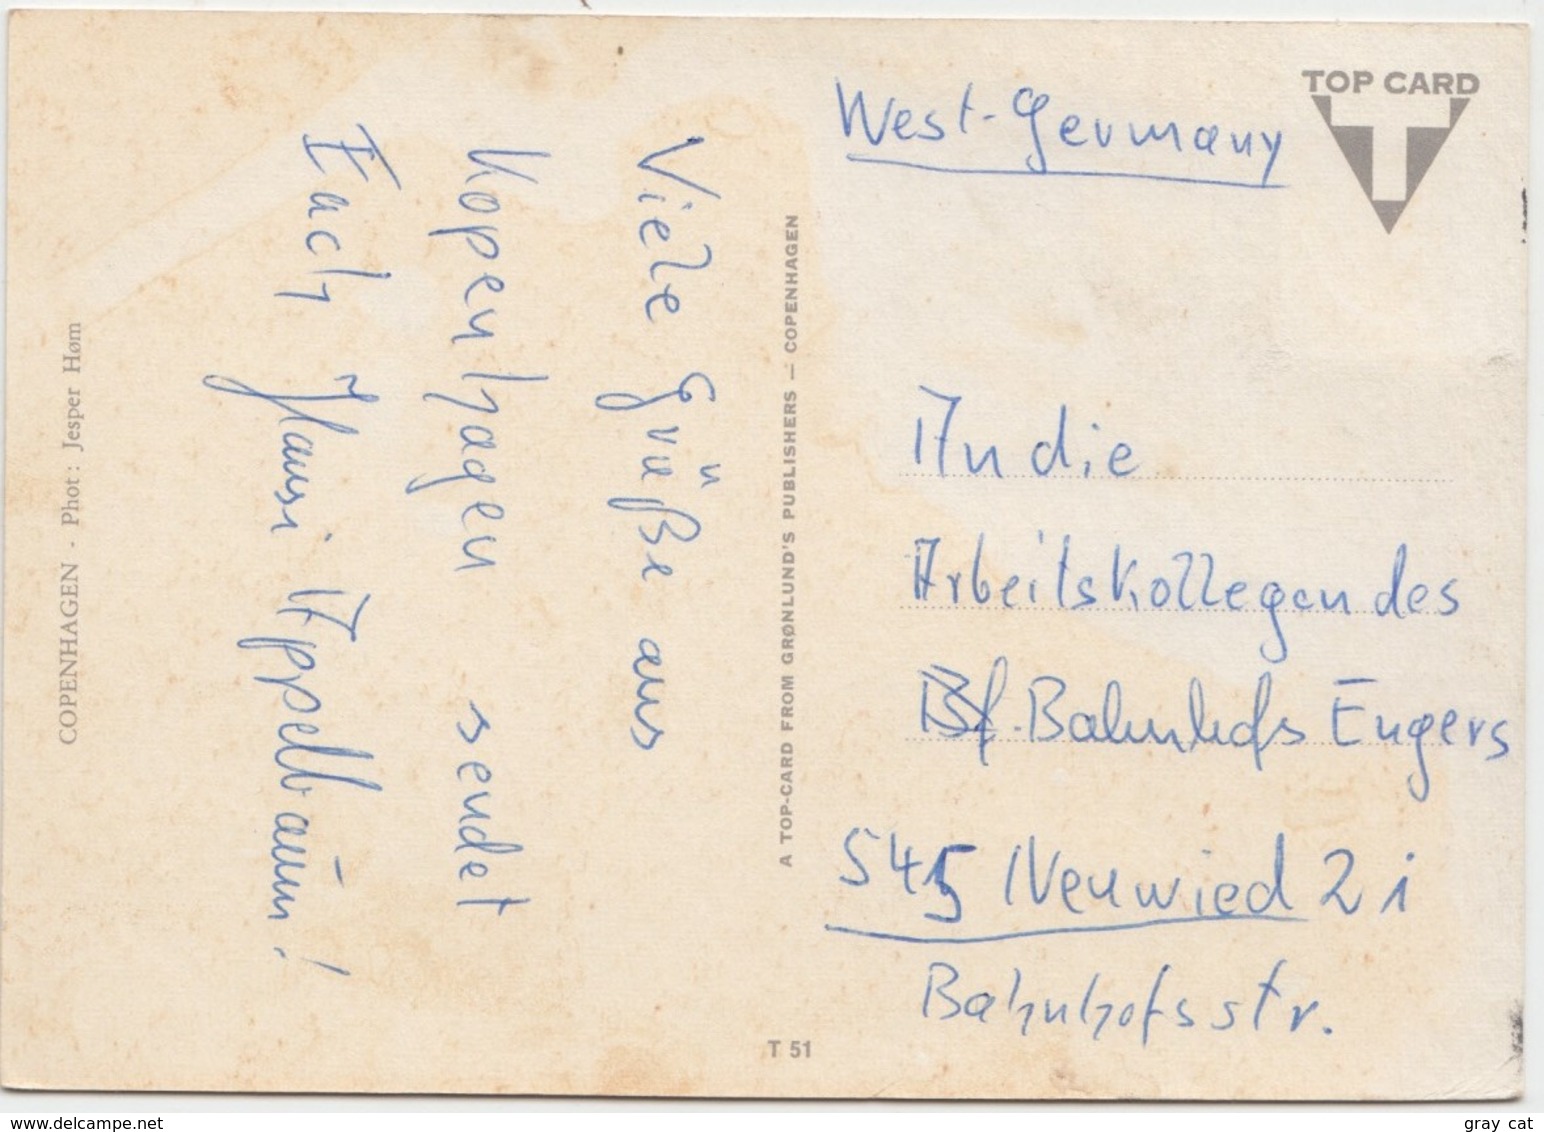 COPENHAGEN - Phot: Jesper Høm
Viele Grüße aus
Kopenhagen sendet
Euch Hansi Appelbaum!
A TOP-CARD FROM GRØNLUND'S PUBLISHERS — COPENHAGEN
T 51
TOP CARD
T
West-Germany
An die
Arbeitskollegen des
Bf. Bahnhofs Engers
545 Neuwied 21
Bahnhofsstr.
https://www.delcampe.net
gray_cat